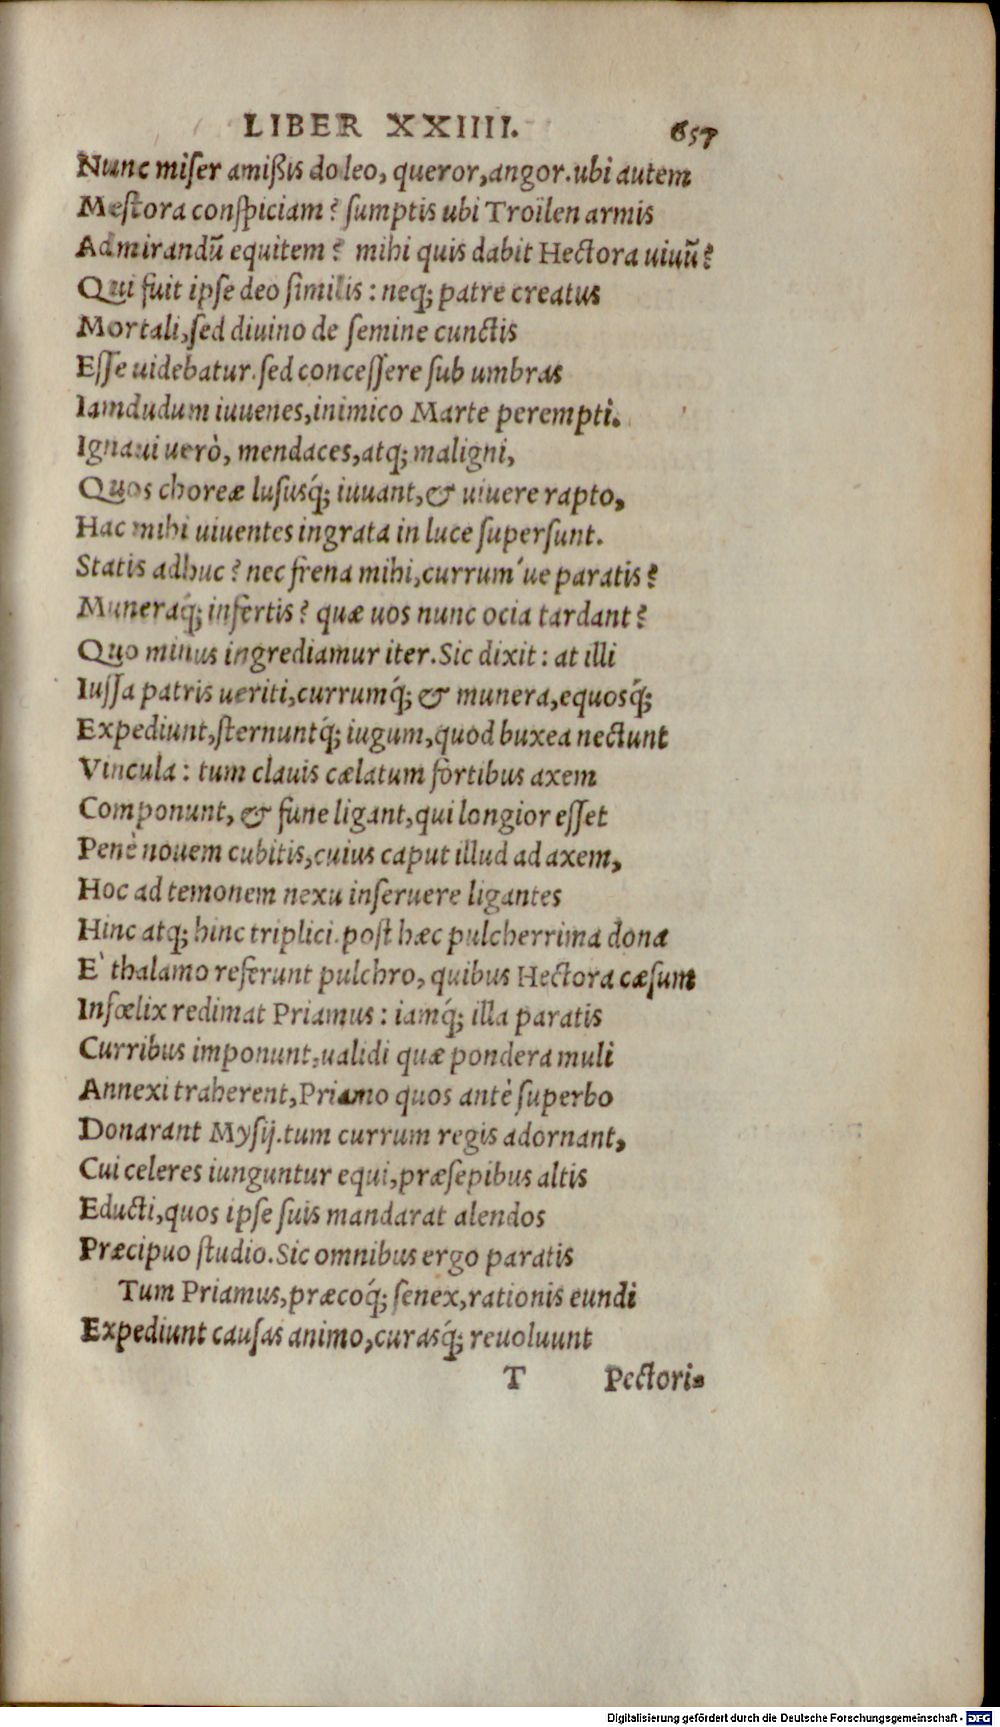 LIBER XXIIII. 657
Nunc miſer amißis doleo, queror, angor. ubi autem
Meſtora conſpiciam? ſumptis ubi Troilen armis
Admirandũ equitem? mihi quis dabit Hectora uiuũ?
Qui fuit ipſe deo ſimilis: neq; patre creatus
Mortali, ſed diuino de ſemine cunctis
Eſſe uidebatur. ſed conceſſere ſub umbras
Iamdudum iuuenes, inimico Marte perempti.
Ignaui uerò, mendaces, atq; maligni,
Quos choreæ luſusq́; iuuant, & uiuere rapto,
Hac mihi uiuentes ingrata in luce ſuperſunt.
Statis adhuc? nec frena mihi, currum´ue paratis?
Muneraq́; infertis? quæ uos nunc ocia tardant?
Quo minus ingrediamur iter. Sic dixit: at illi
Iuſſa patris ueriti, currumq́; & munera, equosq́;
Expediunt, ſternuntq́; iugum, quod buxea nectunt
Vincula: tum clauis cælatum fortibus axem
Componunt, & fune ligant, qui longior eſſet
Penè nouem cubitis, cuius caput illud ad axem,
Hoc ad temonem nexu inſeruere ligantes
Hinc atq; hinc triplici. poſt hæc pulcherrima dona
E` thalamo referunt pulchro, quibus Hectora cæſum
Infœlix redimat Priamus: iamq́; illa paratis
Curribus imponunt, ualidi quæ pondera muli
Annexi traherent, Priamo quos antè ſuperbo
Donarant Myſij. tum currum regis adornant,
Cui celeres iunguntur equi, præſepibus altis
Educti, quos ipſe ſuis mandarat alendos
Præcipuo ſtudio. Sic omnibus ergo paratis
Tum Priamus, præcoq́; ſenex, rationis eundi
Expediunt cauſas animo, curasq́; reuoluunt
T Pectori-
Digitalisierung gefördert durch die Deutsche Forschungsgemeinschaft - DFG